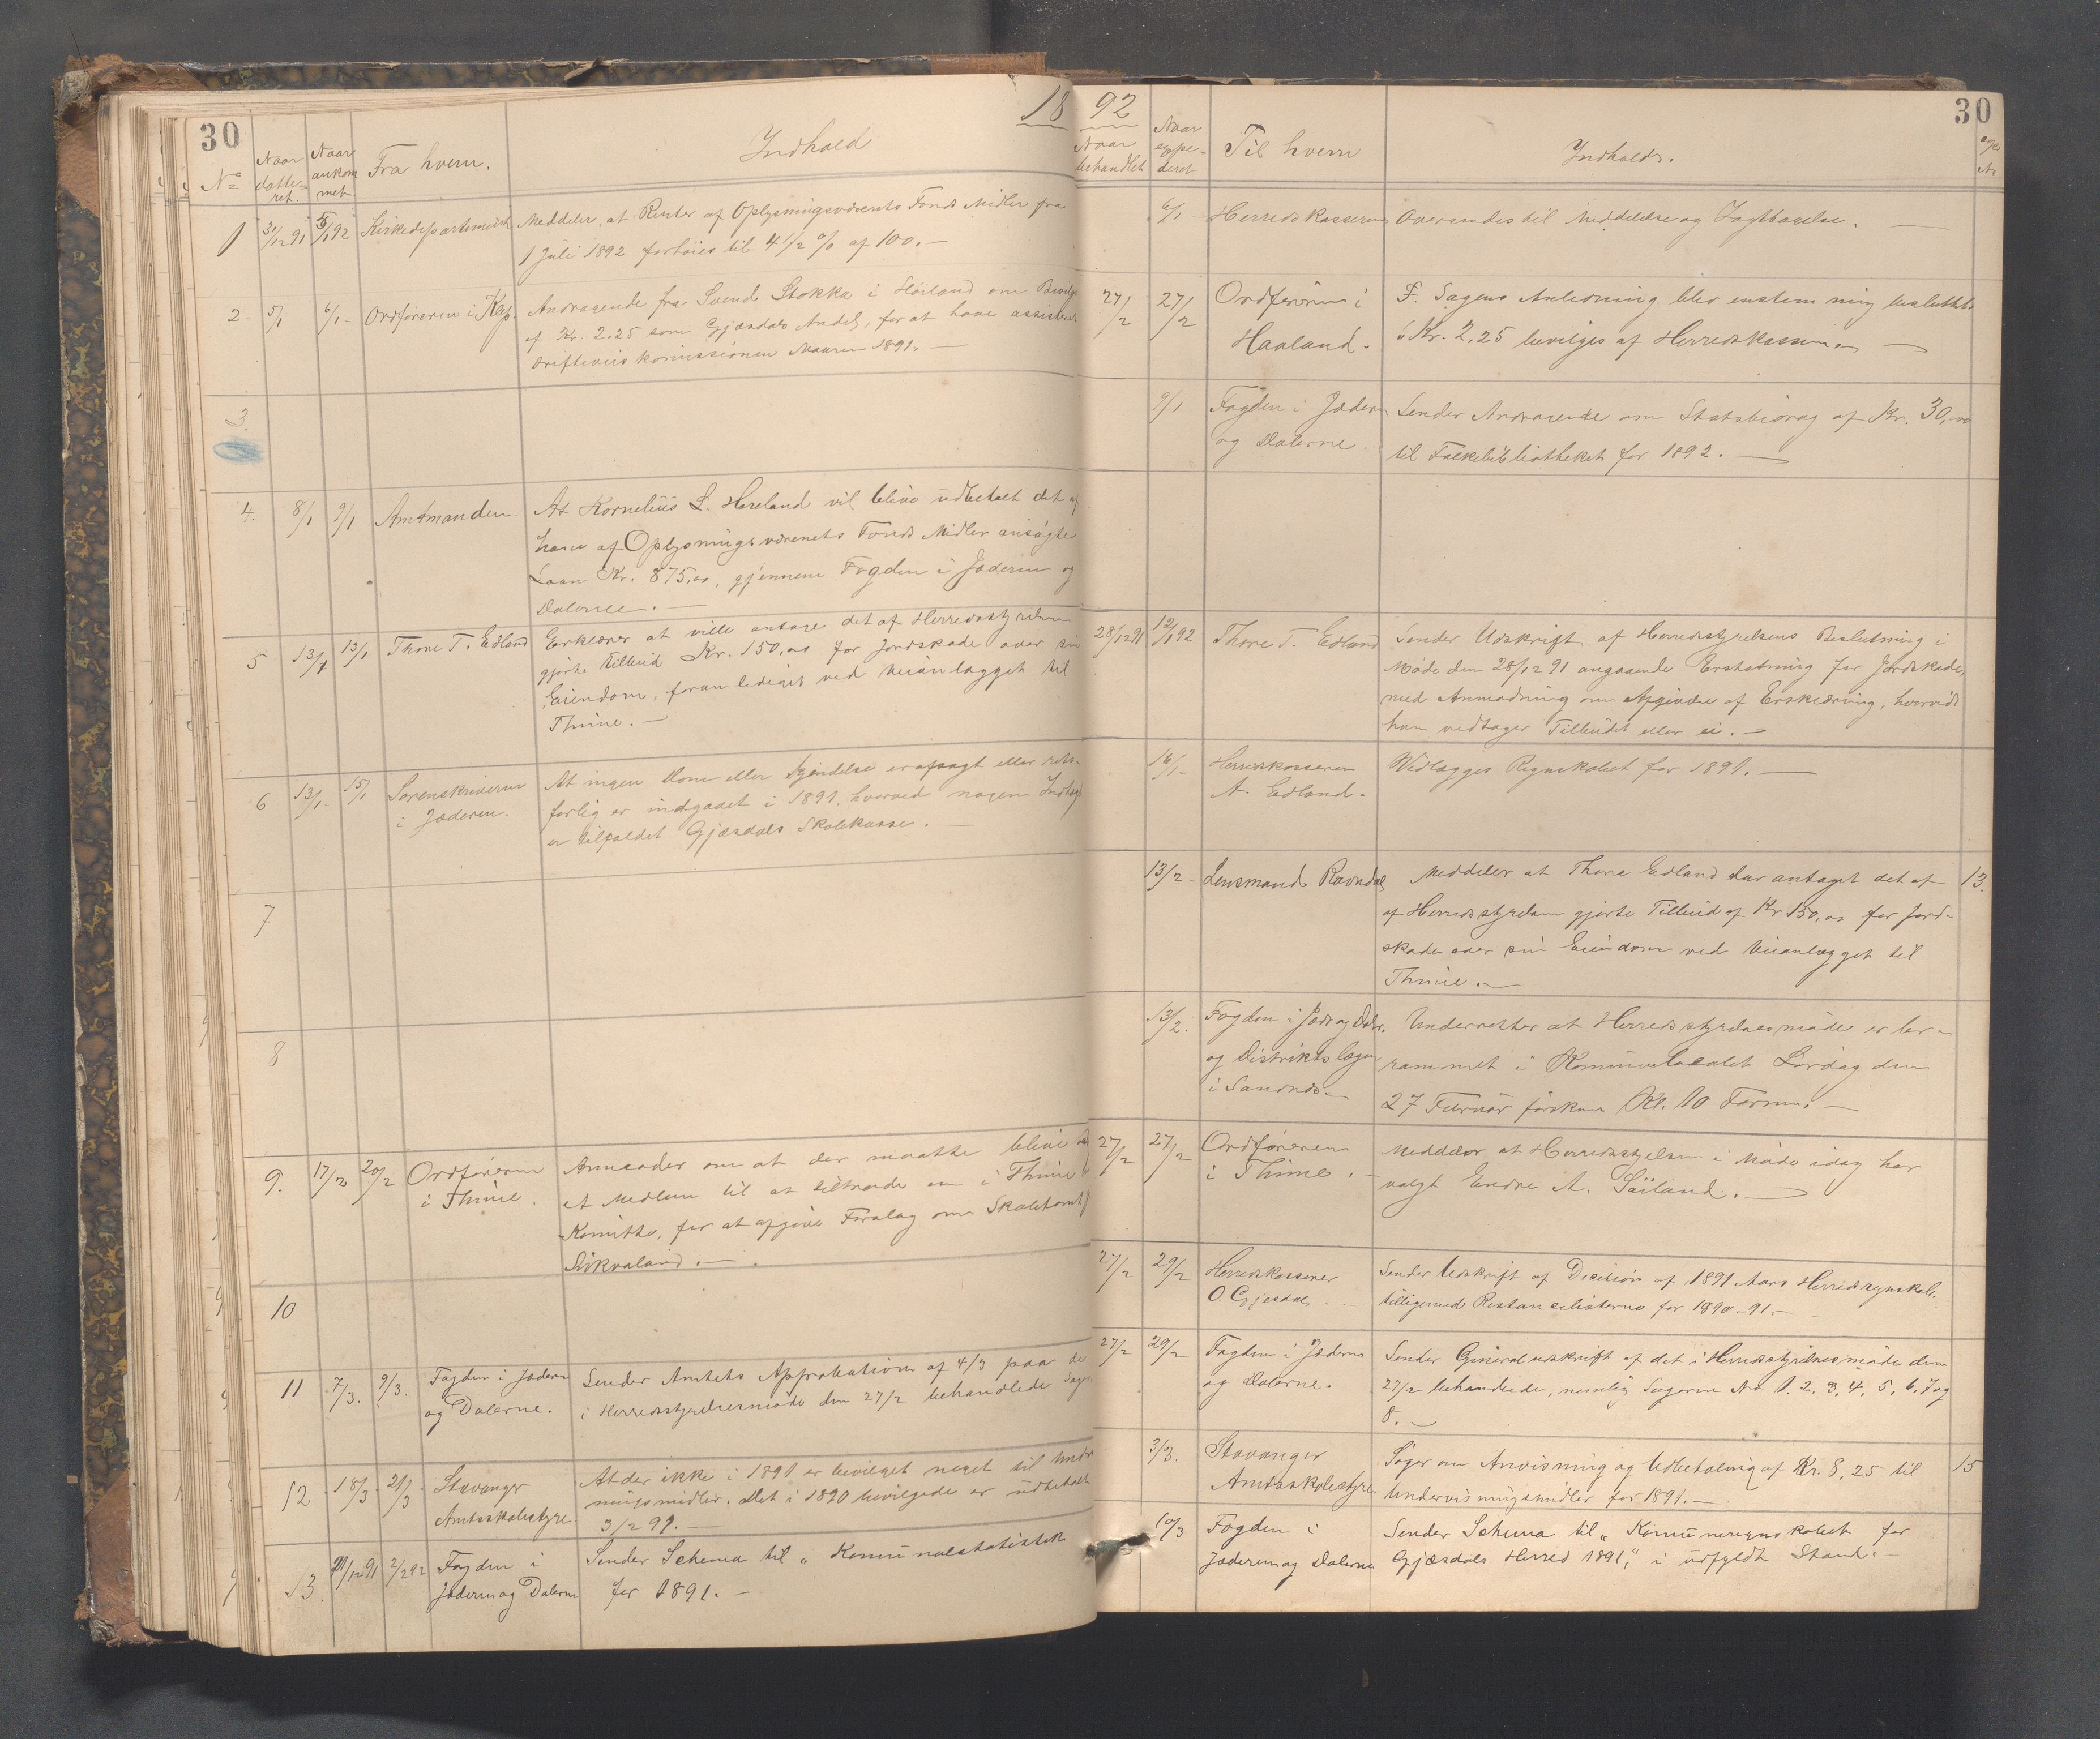 30
18
No
Naar datteret.
Naar ankommet
Fra hvem.
Indhold
1 31/12 91 5/1 92 Kirkedepartementet Meddeler, at Renter af Oplysningsvæsenets Fonds Midler fra
1 Juli 1892 forhöies til 4 1/2 % af 100.—
2 5/1 6/1 Ordföreren i Klep. Andragende fra Svend Stokka i Höiland om
af Kr. 2.25 som Gjæsdals Andel, for at have
driftsveiskomissionen 1891.—
3.
4. 8/1 9/1 Amtmanden. At Kornelius L. Haveland vil blive udbetalt det af
ham af Oplysningsvæsenets Fonds Midler ansögte
Laan Kr. 875,00, gjennem Fogden i Jæderen og
Dalerne.—
5 13/1 13/1 Thore T. Edland Erklærer at ville antage det af Herredsstyrelsen
gjorte tilbud Kr. 150,00 for Jordskade over sin
Eiendom, foranlediget ved Veianlægget til
Thime.—
6 13/1 15/1 Sorenskriveren At ingen Dom eller Kjendelse er afsagt eller rets-
i Jæderen. forlig er indgaaet i 1891, hvorved nogen
er tilfaldet Gjæsdals Skolekasse.—
7
8
9. 17/2 20/2 Ordföreren Anmoder om at der maatte blive
i Thime. et Medlem til at tiltræde en i Thime
Komitte, for at afgive Forslag om Skoletomt
10
11 7/3. 9/3. Fogden i Jæderen Sender Amtets Approbation af 4/3 paa de
og Dalerne. i Herredsstyrelsesmöde den 27/2 behandlede Sager
12 18/3 21/3 Stavanger At der ikke i 1891 er bevilget noget til Under
Amtsskolestyre. ningsmidler. Det i 1890 bevilgede er udbetalt
3/2 91.—
13 /12 91 2/2 92 Fogden i Sender Schema til „Komunalstatistik
Jæderen og Dalerne for 1891.—
92
30
Naar behandlet
Naar expederet
Til hvem
Indholds.
6/1 Herredskasseren Oversendes til Meddelelse og Iagttagelse.—
27/2 27/2 Ordföreren i F. Sagens Anledning blev enstemmig besluttet
Haaland. Kr. 2,25 bevilges af Herredskassen.—
9/1 Fogden i Jæderen Sender Andragende om Statsbidrag af Kr. 30,00
og Dalerne. til Folkebibliotheket for 1892.—
28/12 91 12/1 92 Thore T. Edland Sender Udskrift af Herredsstyrelsens Beslutning i
Möde den 28/12 91 angaaende Erstatning for Jordskade,
med Anmodning om Afgivelse af Erklæring, hvorvidt
han vedtager Tilbudet eller ei.—
16/1 Herredskasseren Vedlægges Regnskabet for 1891.—
A. Edland.
13/2 Lensmand Ravndal Meddeler at Thore Edland har antaget det af 13.
af Herredsstyrelsen gjorte Tilbud af Kr 150,00 for Jord-
skade over sin Eiendom ved Veianlægget til
Thime.—
13/2. Fogden i Jæd. og Daler. Underretter at Herredsstyrelsesmöde er be-
og Distriktslægen rammet i Kommunelocalet Lördag den
i Sandnes 27 Februar förstkom Kl. 10 Form.—
27/2 27/2 Ordföreren Meddeler at Herredsstyrelsen i Möde idag har
i Thime. valgt Endre A. Söiland.—
27/2 29/2 Herredskasserer Sender Udskrift af Decision af 1891 Aars Herredsregnskab.
O. Gjesdal tilligemed Restancelisterne for 1890-91.—
27/2 29/2 Fogden i Jæderen Sender Generaludskrift af det i Herredsstyrelsesmöde den
og Dalerne. 27/2 behandlede, nemlig Sagerne No 1. 2. 3. 4. 5. 6. 7 og
8.—
3/3. Stavanger Söger om Anvisning og Udbetaling af Kr. 8,25 til 15
Amtsskolestyre. Undervisningsmidler for 1891.—
10/3 Fogden i Sender Schema til „Komuneregnskabet for
Jæderen og Dalerne Gjæsdals Herred 1891“, i udfyldt Stand.—